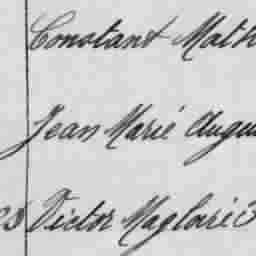 Constant Math
Jean Marie Augu
Victor Magloire